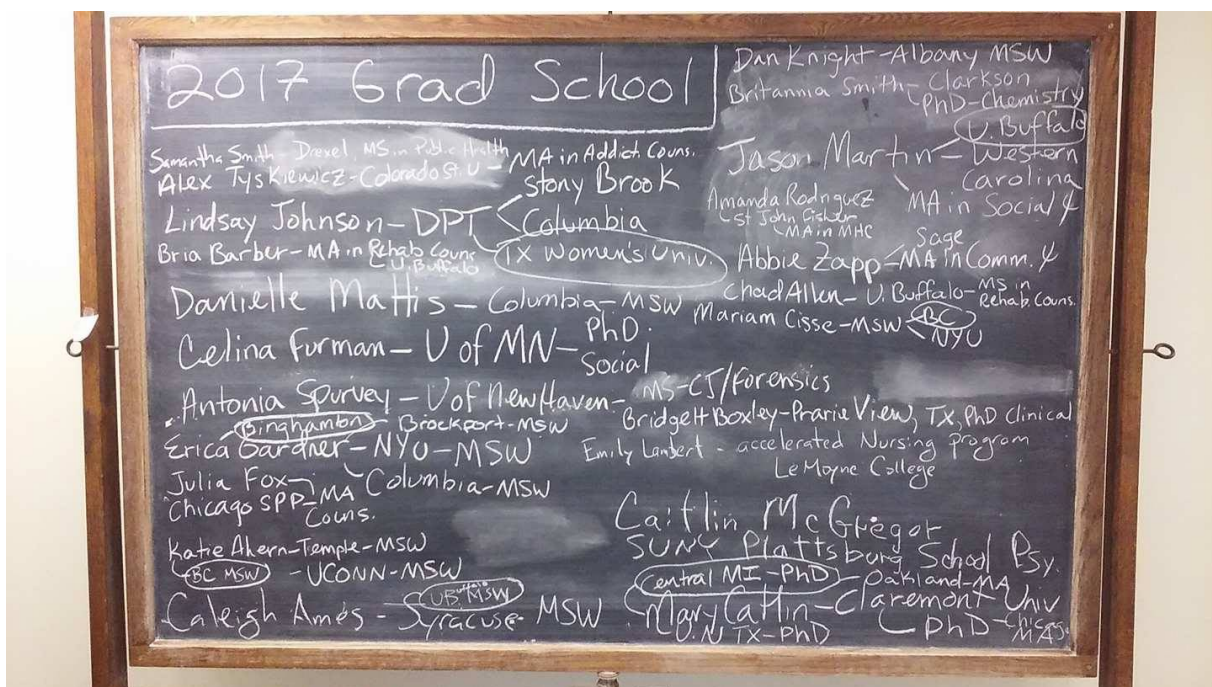 2017 Grad School
Samantha Smith - Drexel, MS in Public Health
Alex Tyskiewicz - Colorado St. U - MA in Addict. Couns.
Stony Brook
Lindsay Johnson - DPT
Columbia
TX Women's Univ.
Bria Barber - MA in Rehab Couns
U. Buffalo
Danielle Mattis - Columbia - MSW
Celina Furman - U of MN - PhD.
Social
Antonia Spurvey - U of New Haven - MS-CJ/Forensics
Binghamton - Brockport-MSW
Erica Gardner - NYU - MSW
Columbia-MSW
Julia Fox
Chicago SPP - MA
Couns.
Katie Ahern - Temple - MSW
BC MSW - UCONN - MSW
UBuffalo MSW
Caleigh Ames - Syracuse - MSW
Dan Knight - Albany MSW
Britannia Smith - Clarkson
PhD - Chemistry
U. Buffalo
Jason Martin - Western
Carolina
MA in Social ψ
Amanda Rodriguez
St John Fisher
MA in MHC
Sage
Abbie Zapp - MA in Comm. ψ
Chad Allen - U. Buffalo - MS in
Rehab. Couns.
Mariam Cisse - MSW BC
NYU
Bridgett Boxley - Prarie View, TX, PhD clinical
Emily Lambert - accelerated Nursing Program
Le Moyne College
Caitlin McGregor
SUNY Plattsburg School Psy.
Central MI - PhD Oakland - MA
Mary Catlin - Claremont Univ
N TX - PhD PhD - Chicago
MA